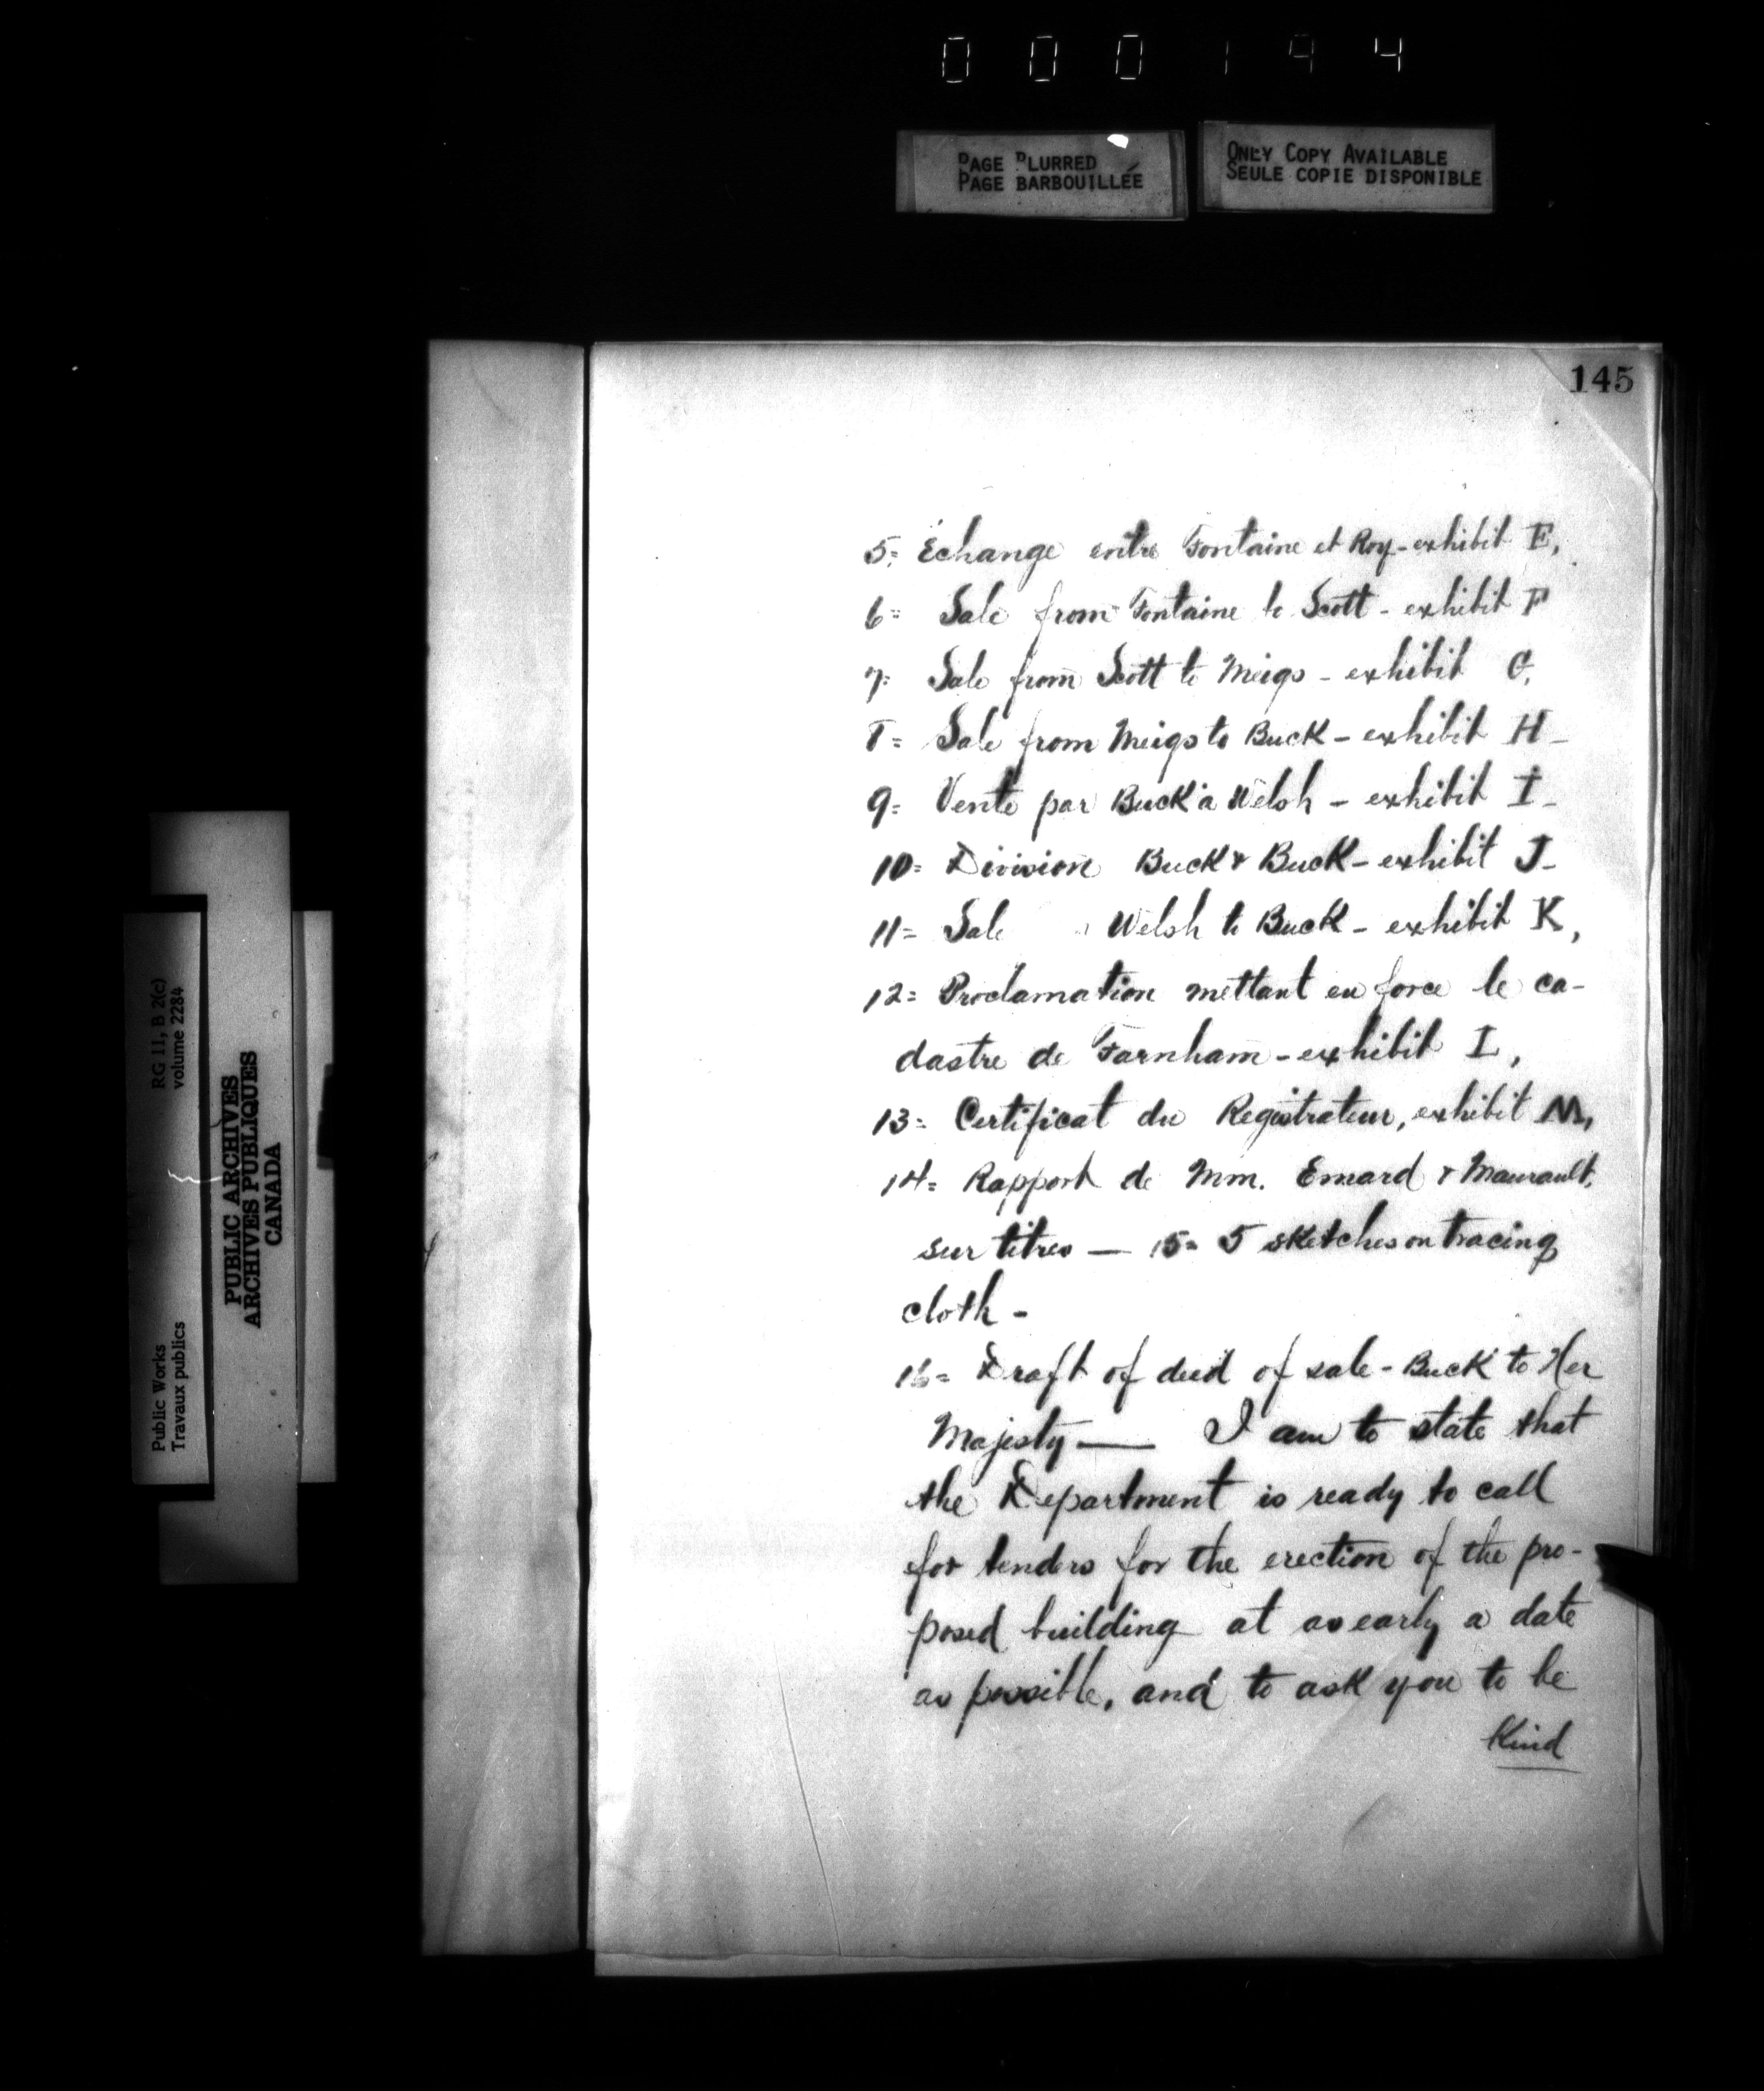 000194
PAGE BLURRED
PAGE BARBOUILLÉE
ONLY COPY AVAILABLE
SEULE COPIE DISPONIBLE
145
5= Échange entre Fontaine et Roy - exhibit E,
6= Sale from Fontaine to Scott - exhibit F
7= Sale from Scott to Meigs - exhibit G,
8= Sale from Meigs to Buck - exhibit H -
9= Vente par Buck à Welsh - exhibit I -
10= Division Buck & Buck - exhibit J -
11= Sale " Welsh to Buck - exhibit K,
12= Proclamation mettant en force le ca-
dastre de Farnham - exhibit L,
13= Certificat du Registrateur, exhibit M,
14= Rapport de Mm. Emard & Maurault,
sur titres — 15= 5 sketches on tracing
cloth -
16= Draft of deed of sale - Buck to Her
Majesty — I am to state that
the Department is ready to call
for tenders for the erection of the pro-
posed building at as early a date
as possible, and to ask you to be
Kind
RG 11, B 2(c)
volume 2284
Public Works
Travaux publics
PUBLIC ARCHIVES
ARCHIVES PUBLIQUES
CANADA